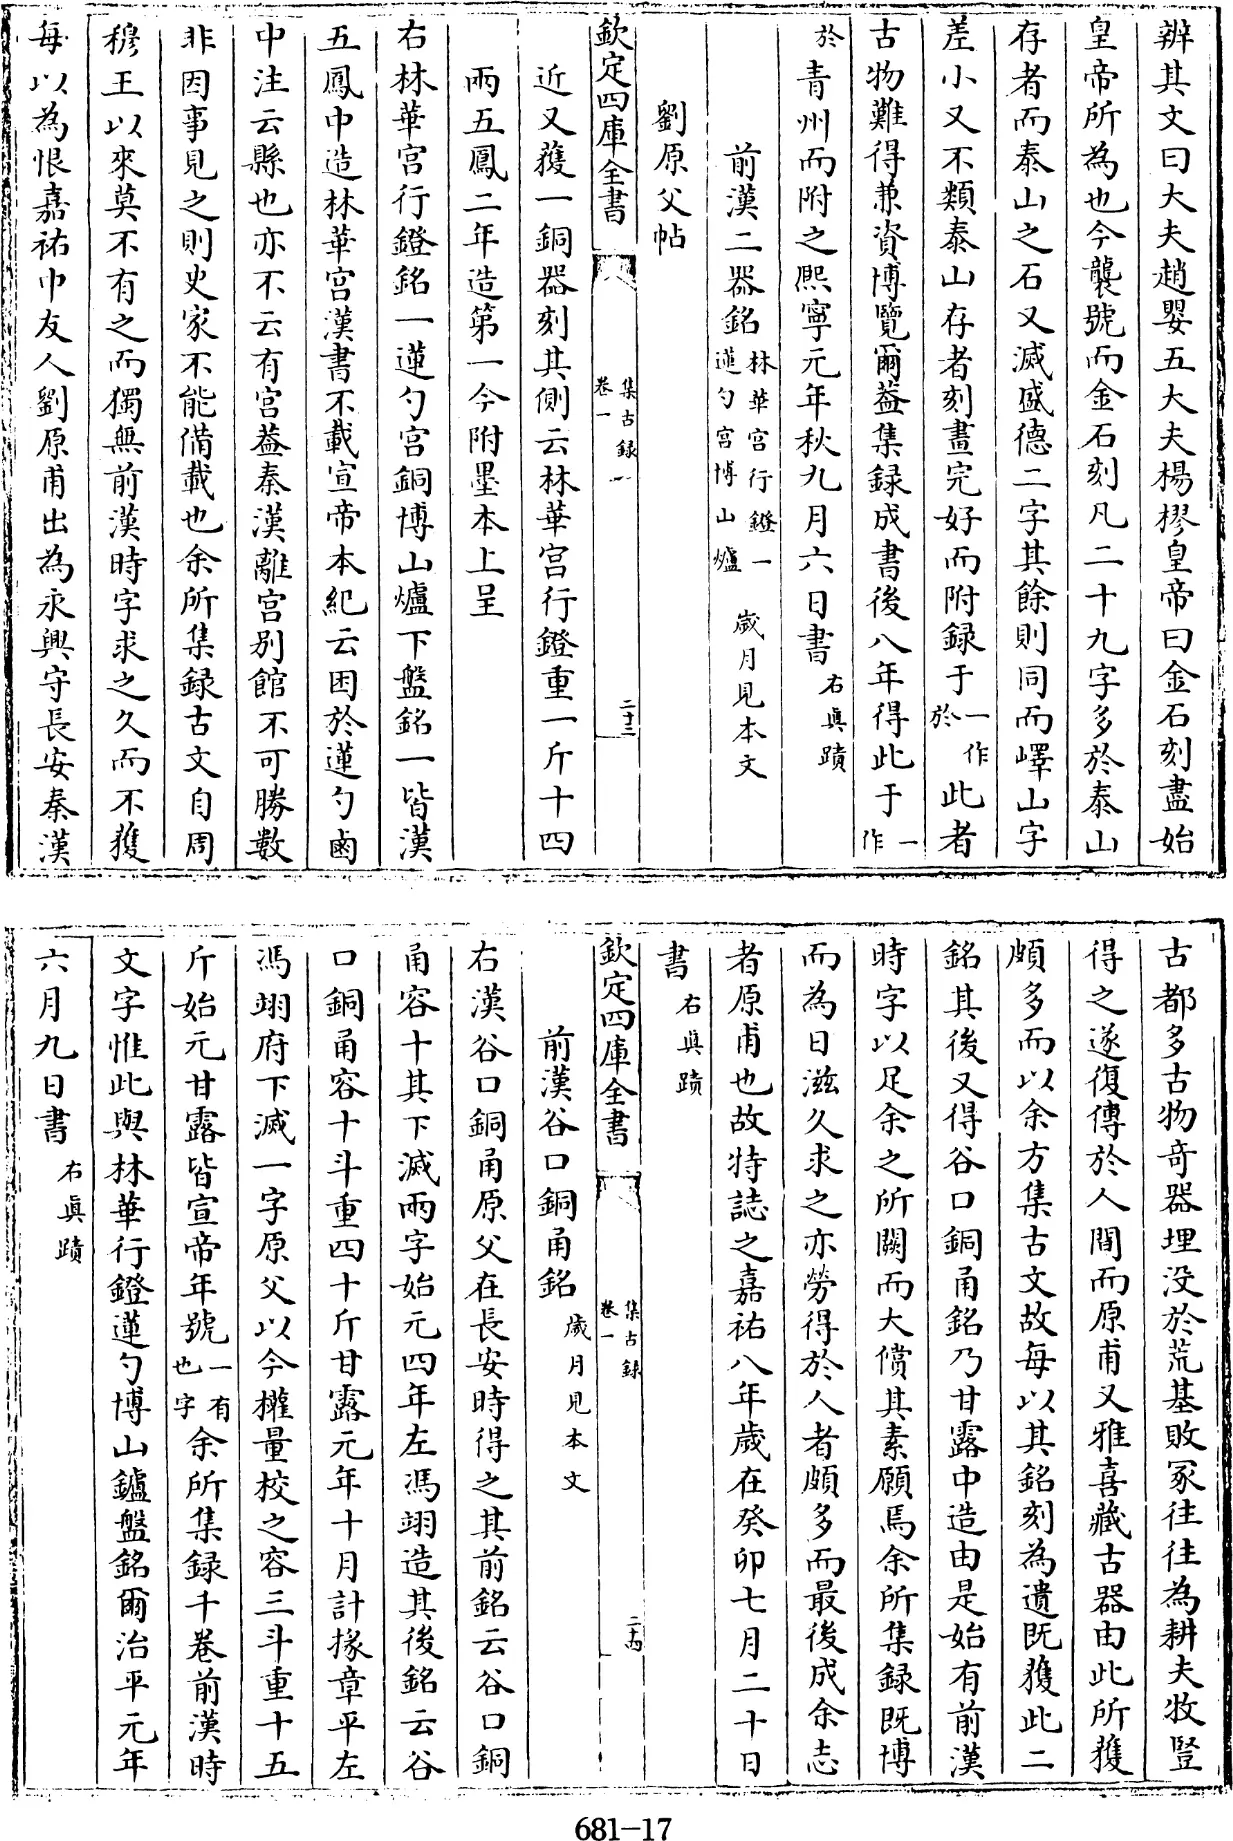 辨其文曰大夫趙嬰五大夫楊樛皇帝曰金石刻盡始
皇帝所為也今襲號而金石刻凡二十九字多於泰山
存者而泰山之石又滅盛德二字其餘則同而嶧山字
差小又不類泰山存者刻畫完好而附録于一作於此者
古物難得兼資博覽爾葢集録成書後八年得此于一作
於青州而附之熙寧元年秋九月六日書右真蹟
前漢二器銘林華宮行鐙一蓮勺宮博山爐一歲月見本文
劉原父帖
欽定四庫全書 集古録 卷一 二十三
近又獲一銅器刻其側云林華宮行鐙重一斤十四
兩五鳳二年造第一今附墨本上呈
右林華宮行鐙銘一蓮勺宮銅博山爐下盤銘一皆漢
五鳳中造林華宮漢書不載宣帝本紀云困於蓮勺鹵
中注云縣也亦不云有宮葢秦漢離宮别館不可勝數
非因事見之則史家不能備載也余所集録古文自周
穆王以來莫不有之而獨無前漢時字求之久而不獲
每以為恨嘉祐中友人劉原甫出為永興守長安秦漢
古都多古物奇器埋没於荒基敗冢往往為耕夫牧豎
得之遂復傳於人間而原甫又雅喜藏古器由此所獲
頗多而以余方集古文故每以其銘刻為遺既獲此二
銘其後又得谷口銅甬銘乃甘露中造由是始有前漢
時字以足余之所闕而大償其素願焉余所集録既博
而為日滋久求之亦勞得於人者頗多而最後成余志
者原甫也故特誌之嘉祐八年歲在癸卯七月二十日
書右真蹟
欽定四庫全書 集古録 卷一 二十四
前漢谷口銅甬銘歲月見本文
右漢谷口銅甬原父在長安時得之其前銘云谷口銅
甬容十其下滅兩字始元四年左馮翊造其後銘云谷
口銅甬容十斗重四十斤甘露元年十月計掾章平左
馮翊府下滅一字原父以今權量校之容三斗重十五
斤始元甘露皆宣帝年號一有也字余所集録千卷前漢時
文字惟此與林華行鐙蓮勺博山鑪盤銘爾治平元年
六月九日書右真蹟
681-17